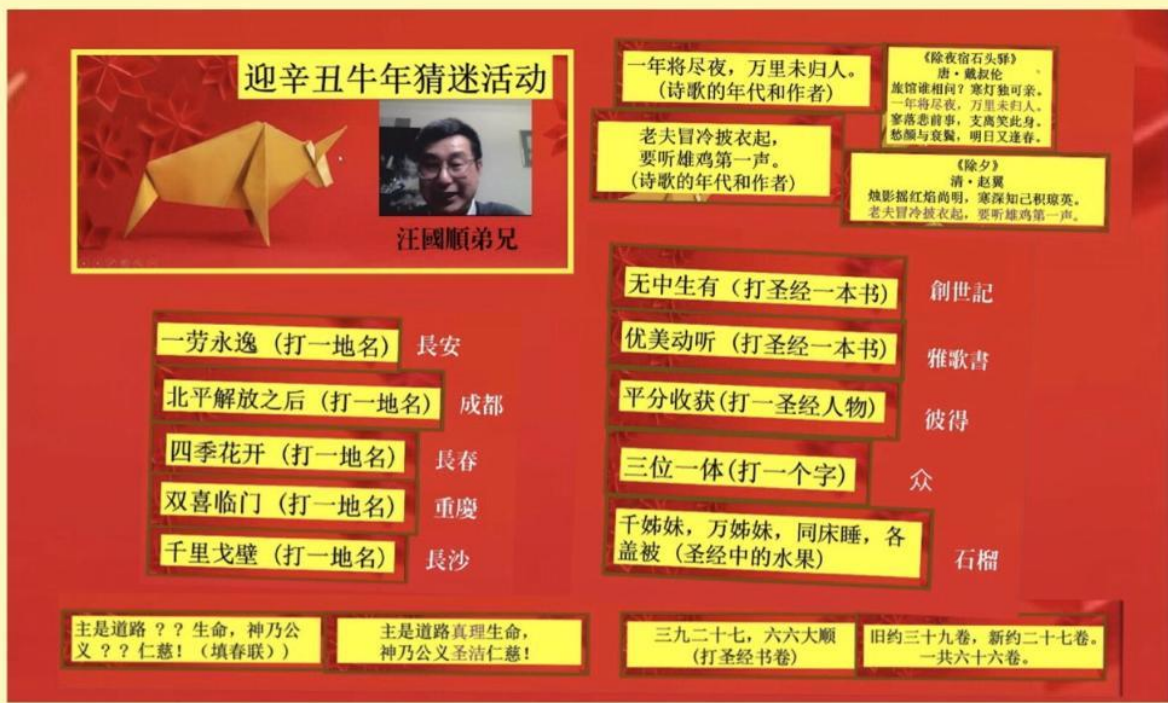 迎辛丑牛年猜迷活动
汪國順弟兄
一年将尽夜，万里未归人。
(诗歌的年代和作者)
《除夜宿石头驿》
唐·戴叔伦
旅馆谁相问？寒灯独可亲。
一年将尽夜，万里未归人。
寥落悲前事，支离笑此身。
愁颜与衰鬓，明日又逢春。
老夫冒冷披衣起，
要听雄鸡第一声。
(诗歌的年代和作者)
《除夕》
清·赵翼
烛影摇红焰尚明，寒深知己积琼英。
老夫冒冷披衣起，要听雄鸡第一声。
一劳永逸（打一地名）長安
北平解放之后（打一地名）成都
四季花开（打一地名）長春
双喜临门（打一地名）重慶
千里戈壁（打一地名）長沙
无中生有（打圣经一本书）創世記
优美动听（打圣经一本书）雅歌書
平分收获(打一圣经人物)彼得
三位一体(打一个字)众
千姊妹，万姊妹，同床睡，各
盖被（圣经中的水果）石榴
主是道路 ？？生命，神乃公
义 ？？仁慈！（填春联））
主是道路真理生命，
神乃公义圣洁仁慈！
三九二十七，六六大顺
(打圣经书卷)
旧约三十九卷，新约二十七卷。
一共六十六卷。